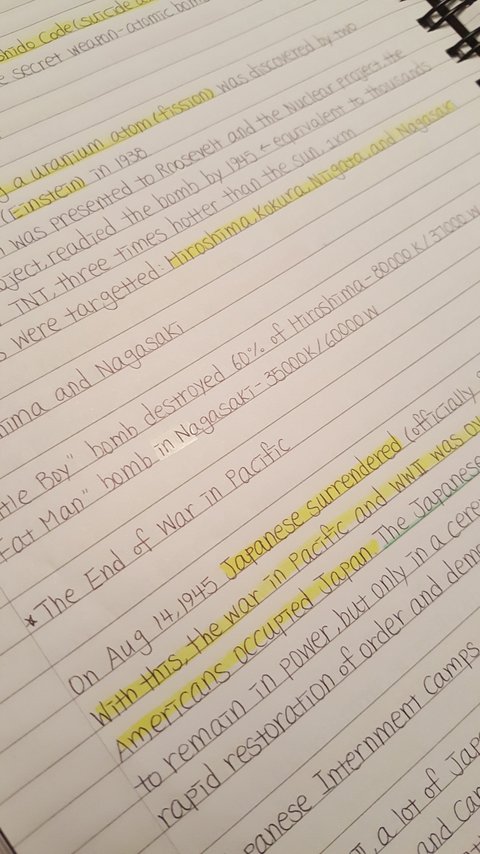 Code (suicide
secret weapon-atomic bomb
a uranium atom (fission) was discovered by two
(Einstein) in 1938
was presented to Roosevelt and the Nuclear project, the
readied the bomb by 1945 ← equivalent to thousands
TNT, three times hotter than the sun, 1km
were targetted: Hiroshima, Kokura, Niigata, and Nagasaki
and Nagasaki
Boy" bomb destroyed 60% of Hiroshima-80000K/37000W
Fat Man" bomb in Nagasaki-35000K/60000W
*The End of War in Pacific
On Aug 14, 1945 Japanese surrendered (officially
With this, the war in Pacific and WWII was
Americans occupied Japan. The Japanese
to remain in power, but only in a
rapid restoration of order and
Internment Camps
a lot of
and